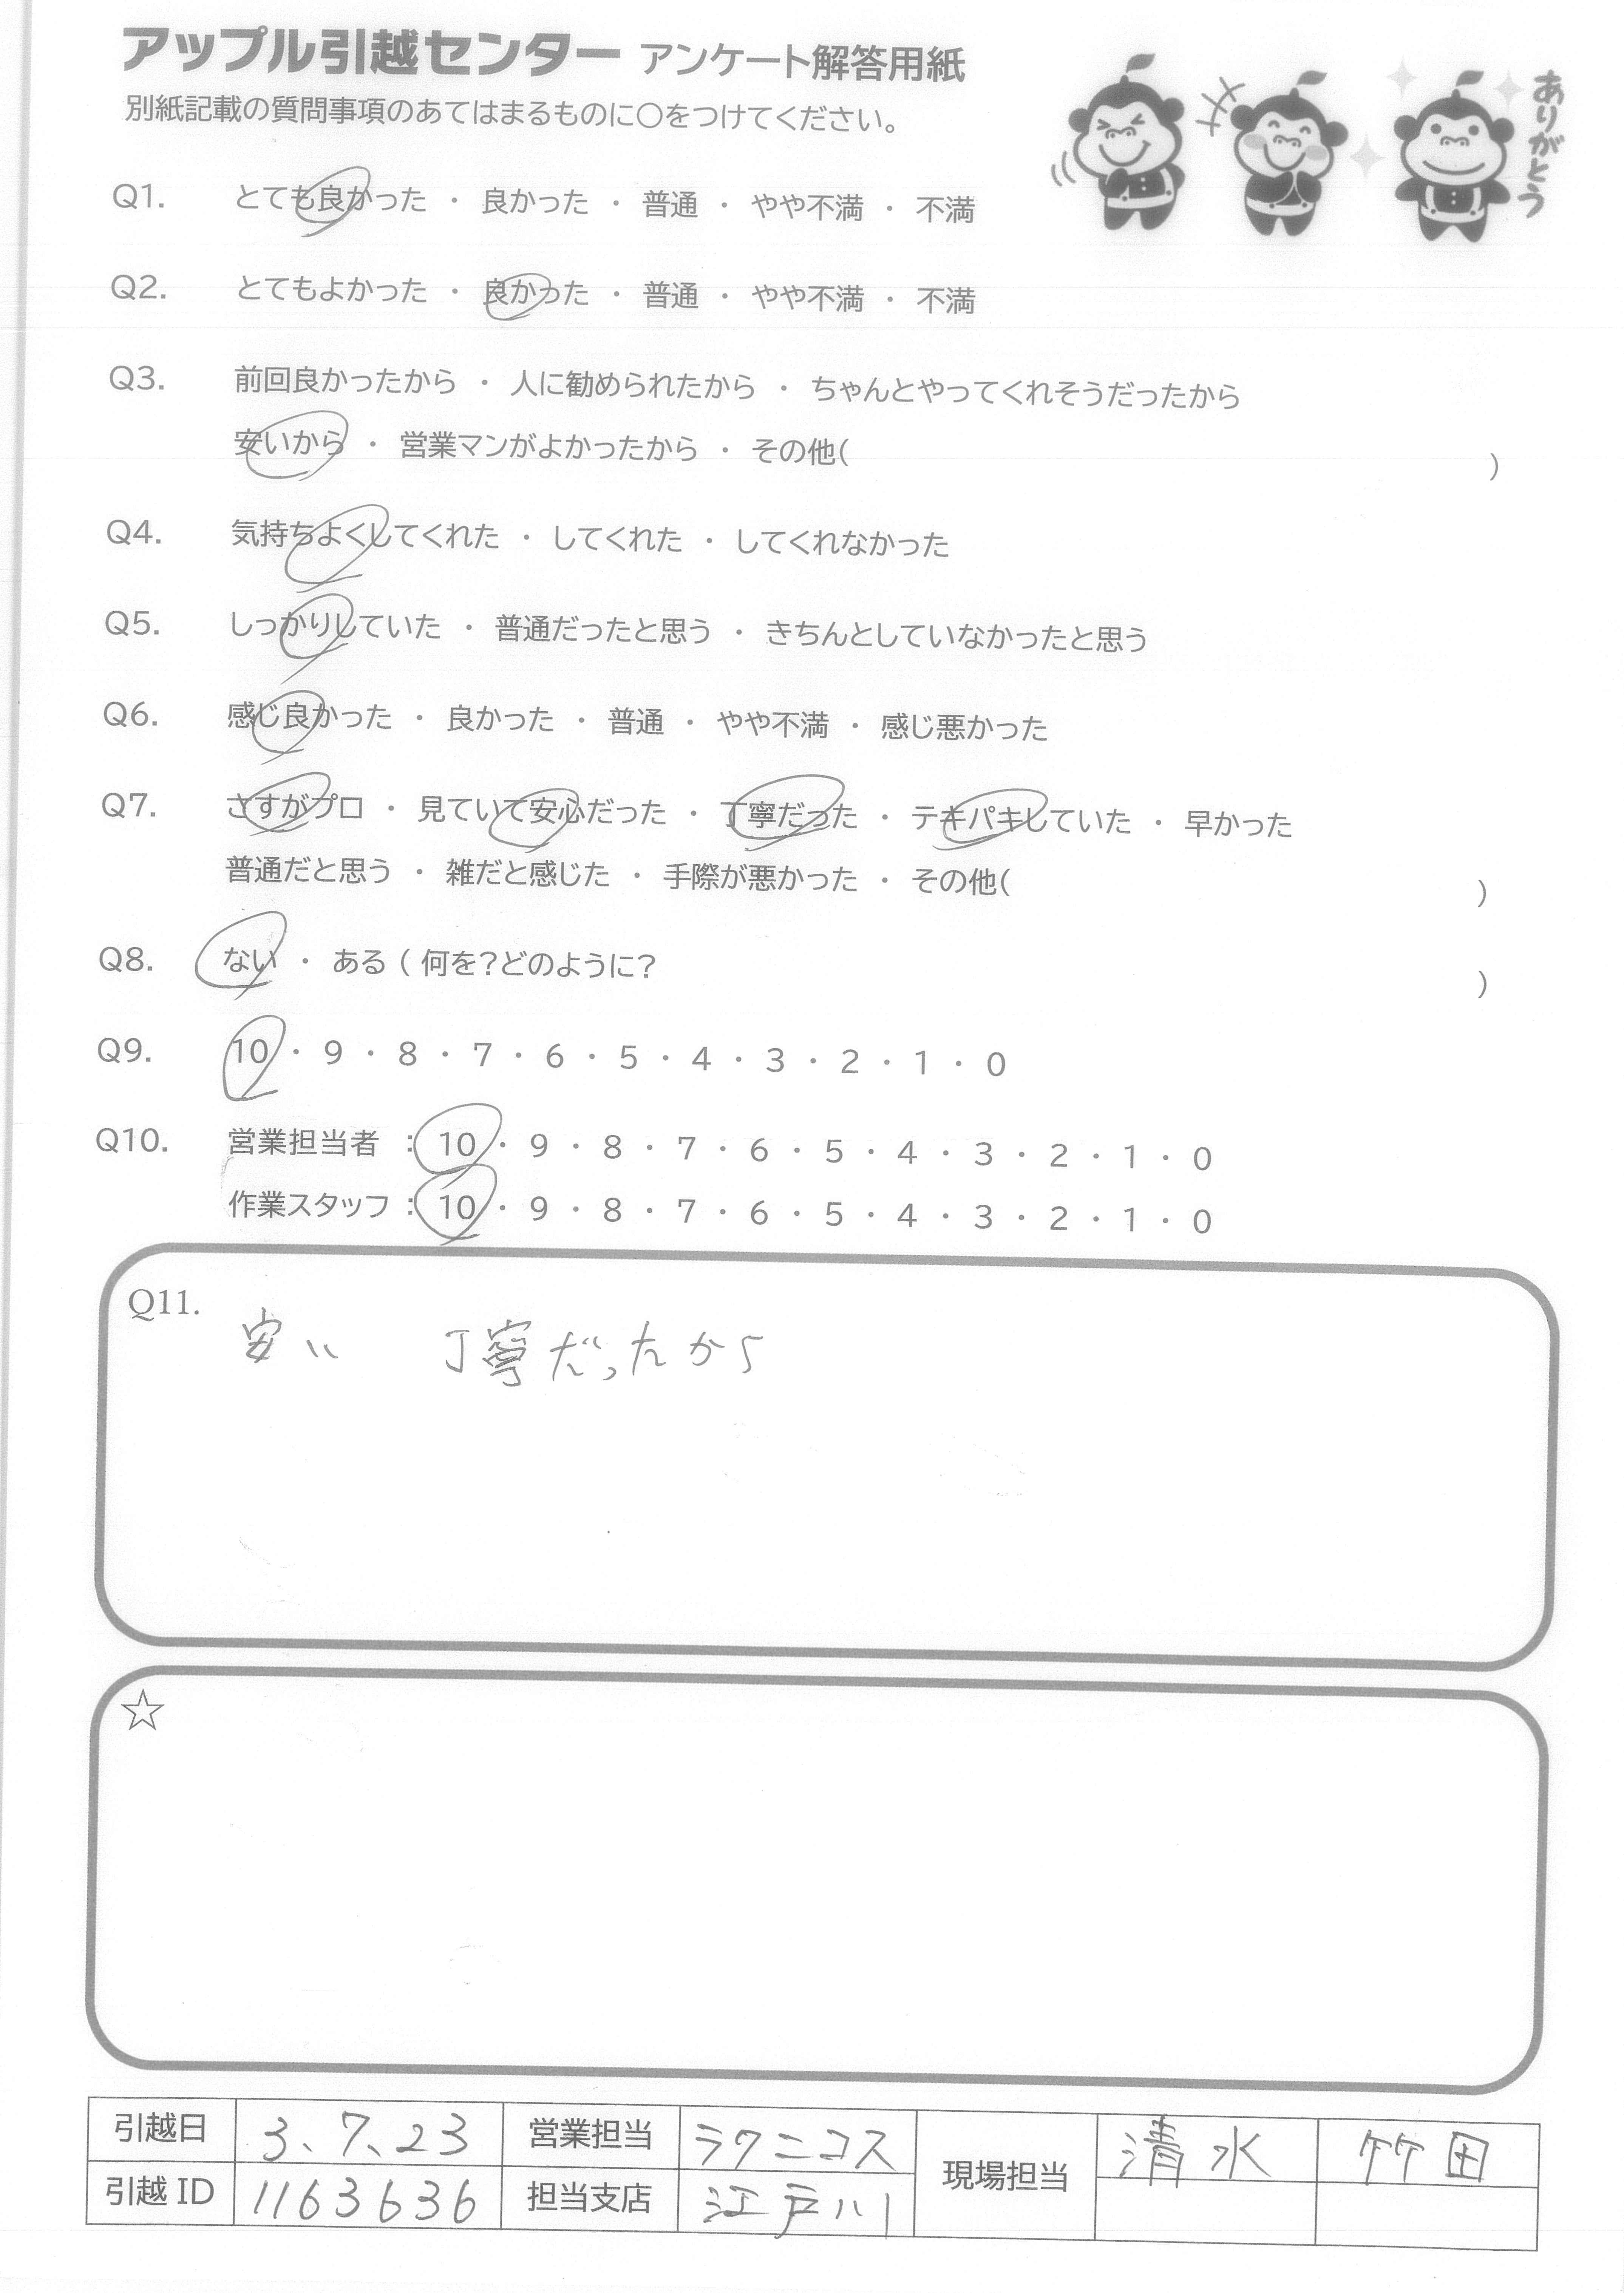 アップル引越センター アンケート解答用紙
別紙記載の質問事項のあてはまるものに○をつけてください。
ありがとう
Q1. とても良かった ・ 良かった ・ 普通 ・ やや不満 ・ 不満
Q2. とてもよかった ・ 良かった ・ 普通 ・ やや不満 ・ 不満
Q3. 前回良かったから ・ 人に勧められたから ・ ちゃんとやってくれそうだったから
安いから ・ 営業マンがよかったから ・ その他( )
Q4. 気持ちよくしてくれた ・ してくれた ・ してくれなかった
Q5. しっかりしていた ・ 普通だったと思う ・ きちんとしていなかったと思う
Q6. 感じ良かった ・ 良かった ・ 普通 ・ やや不満 ・ 感じ悪かった
Q7. さすがプロ ・ 見ていて安心だった ・ 丁寧だった ・ テキパキしていた ・ 早かった
普通だと思う ・ 雑だと感じた ・ 手際が悪かった ・ その他( )
Q8. ない ・ ある ( 何を?どのように? )
Q9. 10 ・ 9 ・ 8 ・ 7 ・ 6 ・ 5 ・ 4 ・ 3 ・ 2 ・ 1 ・ 0
Q10. 営業担当者 : 10 ・ 9 ・ 8 ・ 7 ・ 6 ・ 5 ・ 4 ・ 3 ・ 2 ・ 1 ・ 0
作業スタッフ : 10 ・ 9 ・ 8 ・ 7 ・ 6 ・ 5 ・ 4 ・ 3 ・ 2 ・ 1 ・ 0
Q11. 安い 丁寧だったから
☆
引越日 3、7、23 営業担当 ラクニコス 現場担当 清水 竹田
引越 ID 1163636 担当支店 江戸川